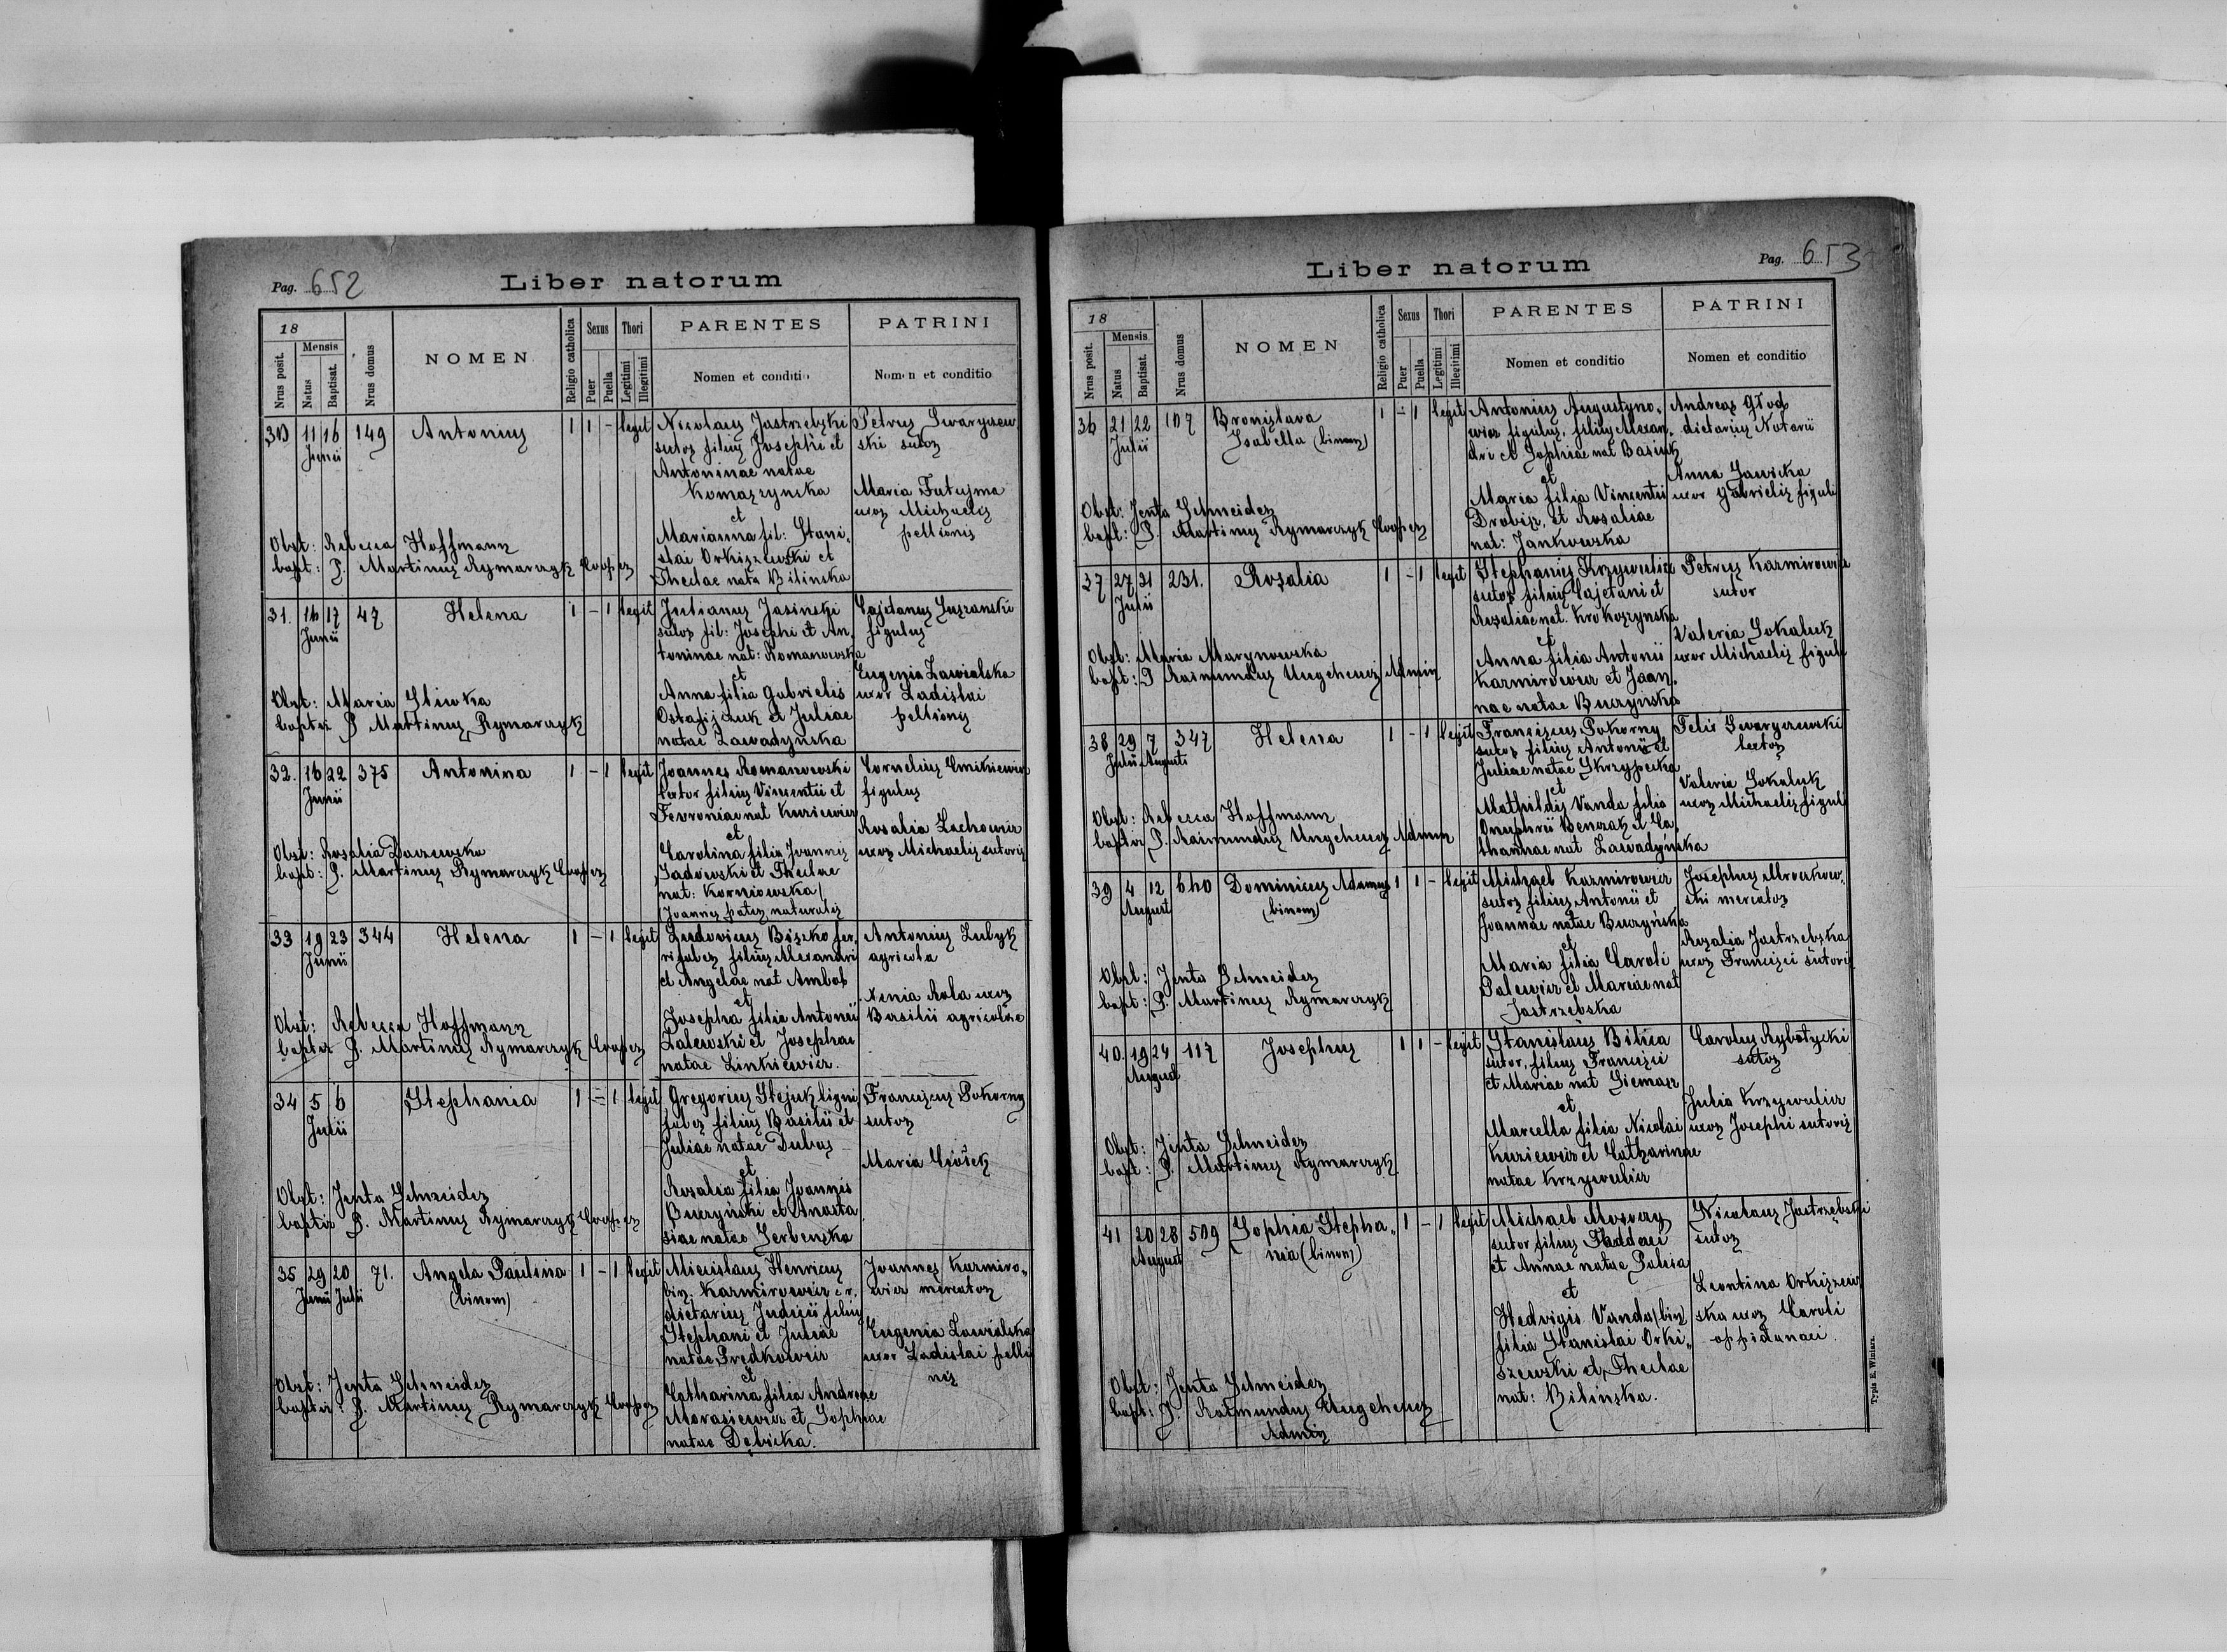 Pag. 652
Liber natorum
18
Nrus posit.
Mensis
Natus
Baptisat.
Nrus domus
NOMEN
Religio catholica
Sexus
Puer
Puella
Thori
Legitimi
Illegitimi
PARENTES
Nomen et conditio
PATRINI
Nomen et conditio
30 11 16 149 Antonius 1 1 - legit
Junii
Nicolaus Jastrzebski
sutor filius Josephi et
Antoninae natae
Komaszynska
et
Marianna fil: Stani-
slai Orkiszewski et
Theclae nata Bilinska
Petrus Swaryczew
ski sutor
Maria Futujma
uxor Michaelis
pellionis
Obst: Rebecca Hoffmann
bapt: P. Martinus Rymarczyk Cooper
31. 16 17 47 Helena 1 - 1 legit
Junii
Julianus Jasinski
sutor fil: Josephi et An
toninae nat: Romanowska
et
Anna filia Gabrielis
Ostafijczuk et Juliae
natae Zawadynska
Cajetanus Suszanski
figulus
Eugenia Zawialska
uxor Ladislai
pellionis
Obst: Maria Sliwka
baptis P Martinus Rymarczyk
32. 16 22 375 Antonina 1 - 1 legit
Junii
Joannes Romanowski
lector filius Vincentii et
Fevroniae nat Kuziewicz
et
Carolina filia Joannis
Sadowski et Theclae
nat: Korniowska/
/Joannes pater naturalis
Cornelius Cmikiewicz
figulus
Rosalia Lachowicz
uxor Michaelis sutoris
Obst: Rosalia Daczewska
bapt: P. Martinus Rymarczyk Cooper
33 19 23 344 Helena 1 - 1 legit
Junii
Ludovicus Biszko fer,
rifaber filius Alexandri
et Angelae nat Ambos
et
Josepha filia Antonii
Zalewski et Josephae
natae Linkiewicz.
Antonius Zubyk
agricola
Xenia Rola uxor
Basilii agricolae
Obst: Rebecca Hoffmann
baptis P. Martinus Rymarczyk Cooper
34 5 6 Stephania 1 - 1 legit
Julii
Gregorius Stejuk ligni
faber filius Basilii et
Juliae natae Dubas
et
Rosalia filia Joannis
Buczyński et Anasta
siae natae Serbenska
Franciscus Pokorny
sutor
Maria Ciosek
Obst: Jenta Schneider
baptis P. Martinus Rymarczyk Cooper
35 29 20 71. Angela Paulina 1 - 1 legit
Junii Julii
(binom)
Miecislaus Henricus
bin. Kazmirowicz c.r.
dietarius Judicii filius
Stephani et Juliae
natae Predkowicz
et
Catharina filia Andreae
Morasiewicz et Sophiae
natae Dębicka.
Joannes Kazmiro-
wicz mercator
Eugenia Zawialska
uxor Ladislai pellio
nis
Obst: Jenta Schneider
baptis: P. Martinus Rymarczyk Cooper
Pag. 653
Liber natorum
18
Nrus posit.
Mensis
Natus
Baptisat.
Nrus domus
NOMEN
Religio catholica
Sexus
Puer
Puella
Thori
Legitimi
Illegitimi
PARENTES
Nomen et conditio
PATRINI
Nomen et conditio
36 21 22 107 Bronislava 1 - 1 legit
Julii
Isabella (binom)
Antonius Augustyno-
wicz figulus, filius Alexan-
dri et Sophiae nat Basiuk
et
Maria filia Vincentii
Drobisz, et Rosaliae
nat: Jankowska
Andreas Głod
dietarius Notarii
Anna Sawicka
uxor Gabrielis figuli
Obst: Jenta Schneider
bapt: P. Martinus Rymarczyk Cooper
37 27 31 231. Rosalia 1 - 1 legit
Julii
Stephanus Krzywulicz
sutor filius Cajetani et
Rosaliae nat. Krokoszynska
et
Anna filia Antonii
Kazmirowicz et Joan,
nae natae Buczynska
Petrus Kazmirowicz
sutor
Valeria Sokaluk
uxor Michaelis figuli
Obst: Maria Marynowska
bapt: P Raimundus Ungeheuer Admin
38 29 7 347 Helena 1 - 1 legit
Julii Augusti
Franciscus Pokorny
sutor filius Antonii et
Juliae natae Skrzypecka
et
Mathildis Vanda filia
Onuphrii Benczak et Ca
tharinae nat Zawadynska
Felix Swaryczewski
lector
Valeria Sokaluk
uxor Michaelis figuli
Obst: Rebecca Hoffmann
baptis P. Raimundus Ungeheuer Admin
39 4 12 640 Dominicus Adamus 1 1 - legit
August
(binom)
Michael Kazmirowicz
sutor filius Antonii et
Joannae natae Buczyńska
et
Maria filia Caroli
Palewicz et Mariae nat
Jastrzebska
Josephus Mroczkow-
ski mercator
Rosalia Jastrzebska
uxor Francisci sutoris
Obst: Jenta Schneider
bapt: P. Martinus Rymarczyk
40. 19 24 117 Josephus 1 1 - legit
August
Stanislaus Bilica
sutor, filius Francisci
et Mariae nat Siemasz
et
Marcella filia Nicolai
Kuziewicz et Catharinae
natae Krzywulicz
Carolus Rybotycki
sutor
Julia Krzywulicz
uxor Josephi sutoris
Obst: Jenta Schneider
bapt: P. Martinus Rymarczyk
41 20 28 509 Sophia Stepha- 1 - 1 legit
August
nia (binom)
Michael Moscay
sutor filius Thaddaei
et Annae natae Palica
et
Hedvigis Vanda/bin/
filia Stanislai Orki-
szewski et Theclae
nat: Bilinska.
Nicolaus Jastrzębski
sutor
Leontina Orkiszew
ska uxor Caroli
oppidanei.
Obst: Jenta Schneider
bapt: P. Raimundus Ungeheuer
Admin
Typis E. Winiarz.